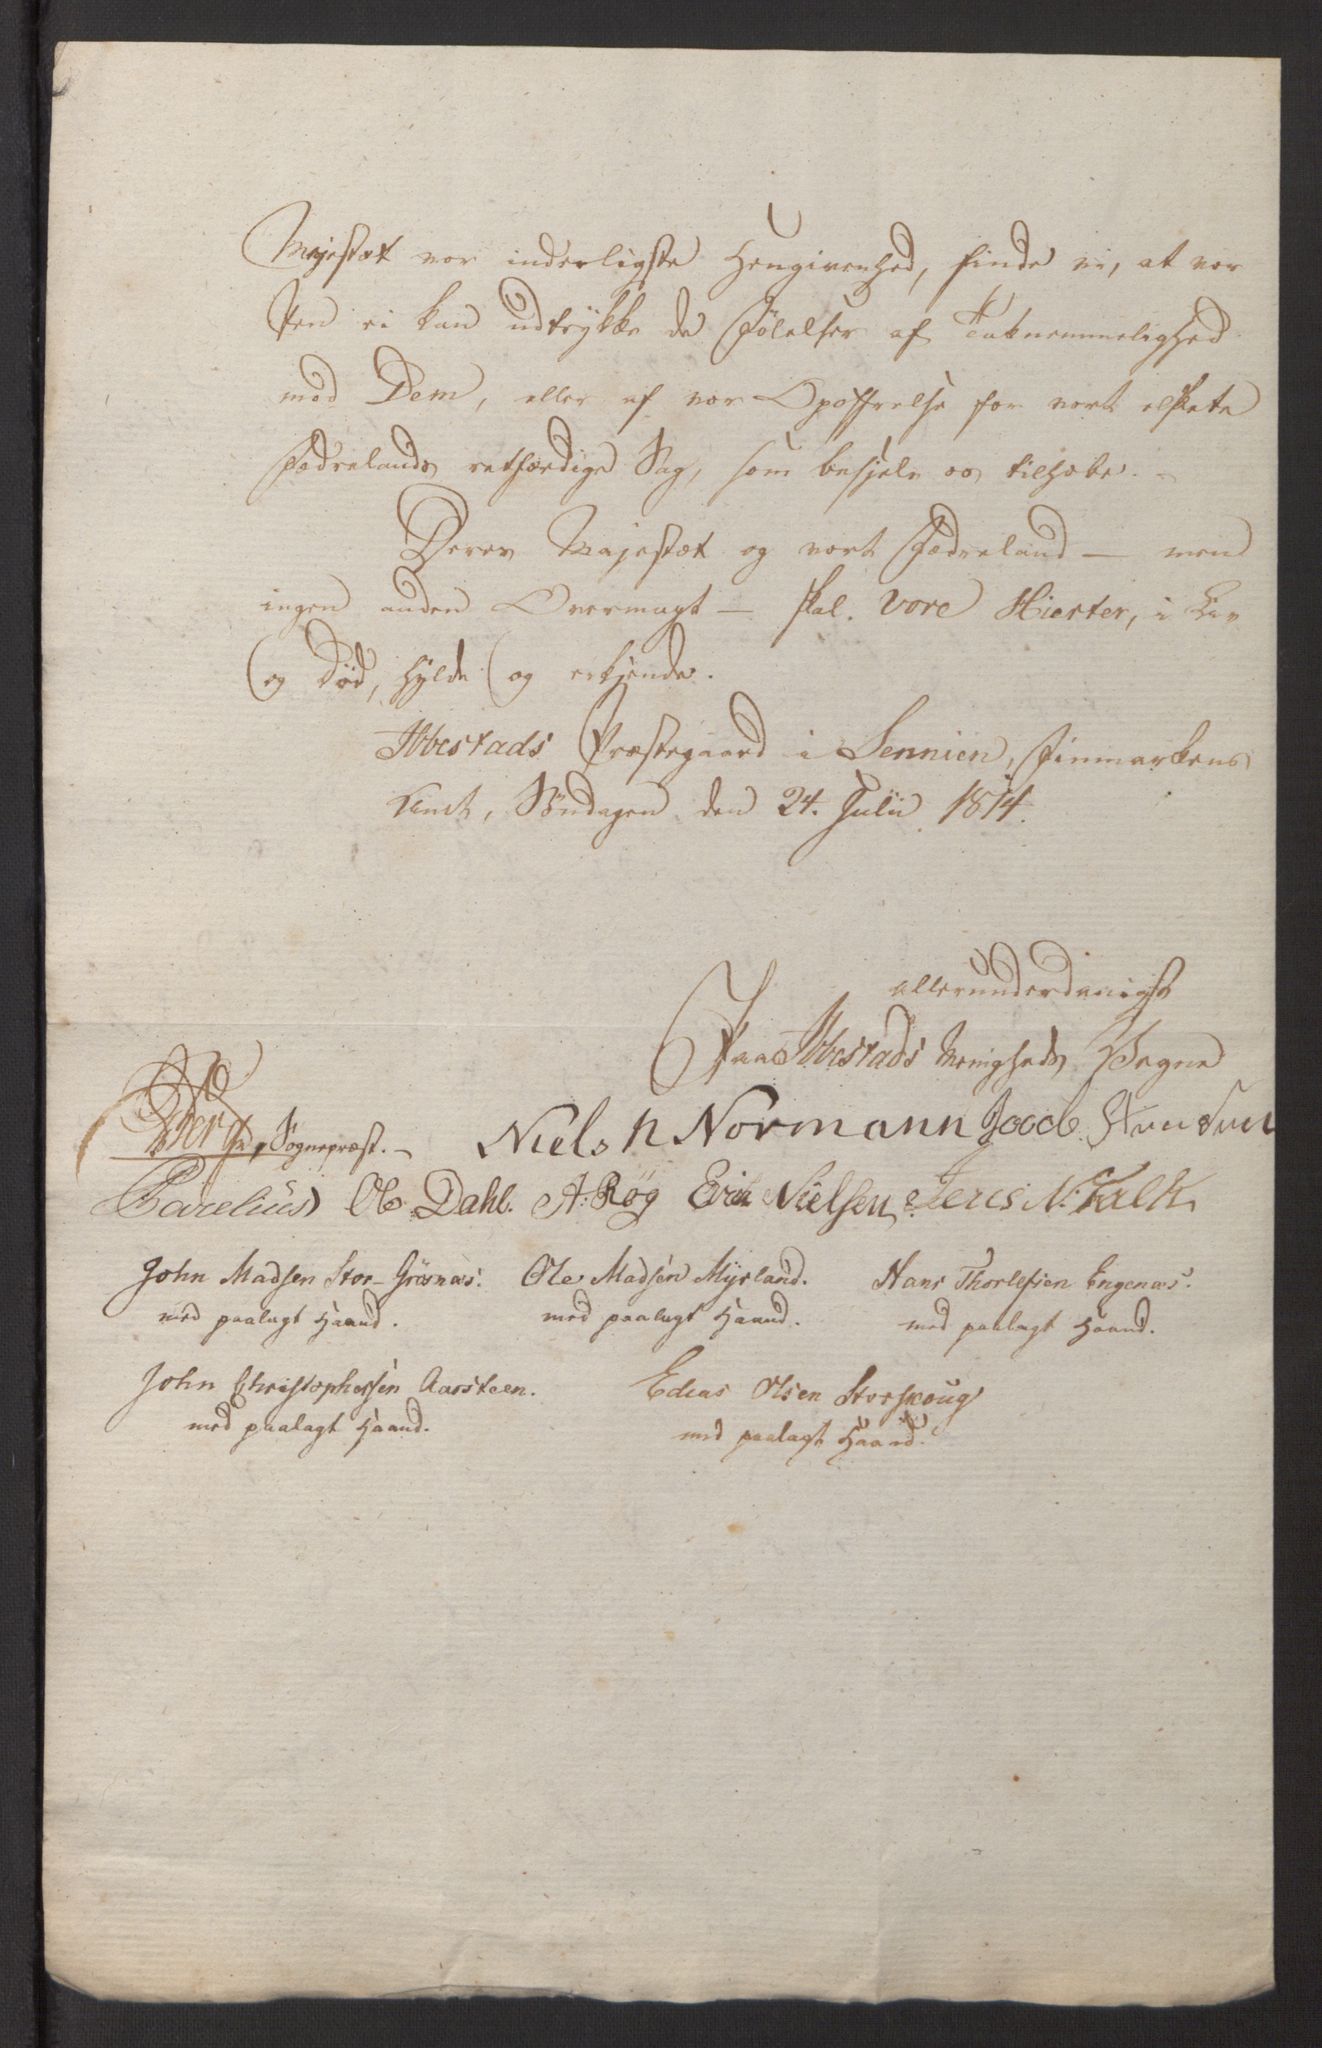 Majestæt vor inderligste Hengivenhed, finde vi, at vor
Pen ei kan udtrykke de Følelser af Taknemmelighed
mod Dem, eller af vor Opoffrelse for vort elskete
Fædrelands retfærdige Sag, som besjele os tilhobe. -
Deres Majestæt og vort Fædreland — men
ingen anden Overmagt — skal vore Hierter, i Liv
og Død, hylde og erkjende.
Ibbestads Præstegaard i Sennien, Finmarkens
Amt, Søndagen den 24. Julii 1814.
allerunderdanigst
Paa Ibbestads Menigheds Vegne
Sognepræst. - Niels N Normann Jacob
Parelius Ole Dahl. A: Røg Erik Nielsen Jens N: Falk
John Madsen Stor-Gråsnæs. Ole Madsen Myrland. Hans Thorlefsen Engenæs.
med paalagt Haand. med paalagt Haand. med paalagt Haand.
John Christophersen Aarsteen. Edias Olsen Storskoug
med paalagt Haand. med paalagt Haand.